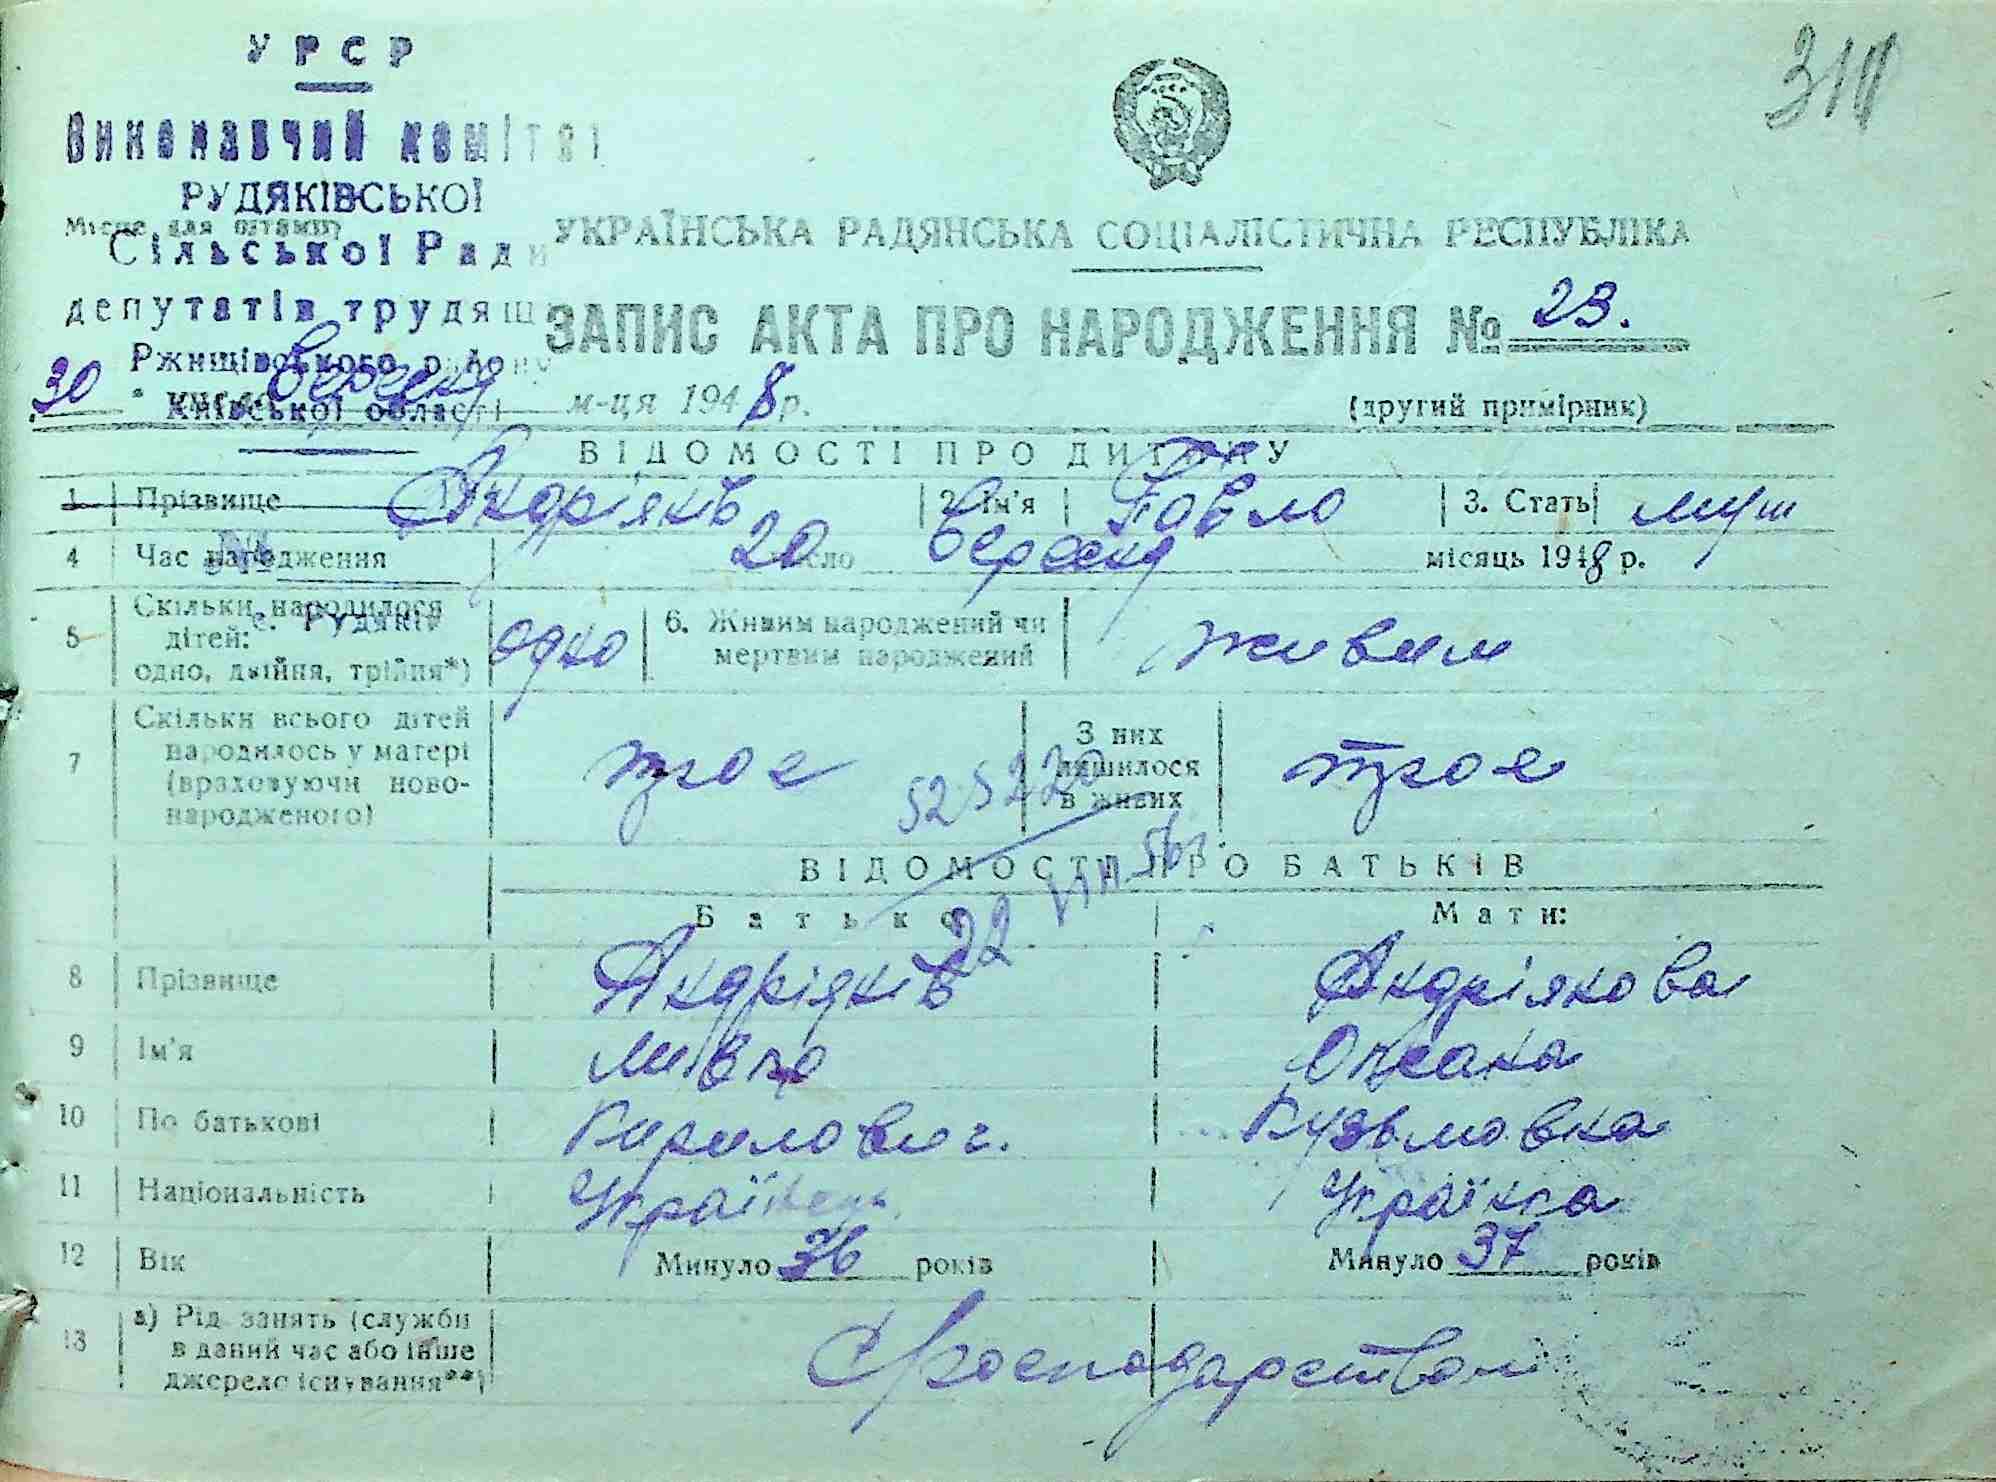 310
УРСР
Виконавчий комітет
РУДЯКІВСЬКОЇ
Місце для штампу
Сільської Ради
депутатів трудящ
Ржищівського району
Київської області
с. Рудяків
УКРАЇНСЬКА РАДЯНСЬКА СОЦІАЛІСТИЧНА РЕСПУБЛІКА
ЗАПИС АКТА ПРО НАРОДЖЕННЯ № 23.
30 вересня м-ця 1948 р.
(другий примірник)
ВІДОМОСТІ ПРО ДИТИНУ
1 Прізвище Андріяків 2. Ім'я Павло 3. Стать муш
4 Час народження 20 число вересня місяць 1948 р.
5 Скільки народилося дітей: одно, двійня, трійня*) одно 6. Живим народжений чи мертвим народжений живим
7 Скільки всього дітей народилось у матері (враховуючи новонародженого) троє З них лишилося в живих троє
ВІДОМОСТІ ПРО БАТЬКІВ
Батько Мати:
8 Прізвище Андріяків Андріякова
9 Ім'я Оксана
10 По батькові Кирилович. Кузьмовна
11 Національність Українець Українка
12 Вік Минуло 36 років Минуло 37 років
13 а) Рід занять (служби в даний час або інше джерело існування**)